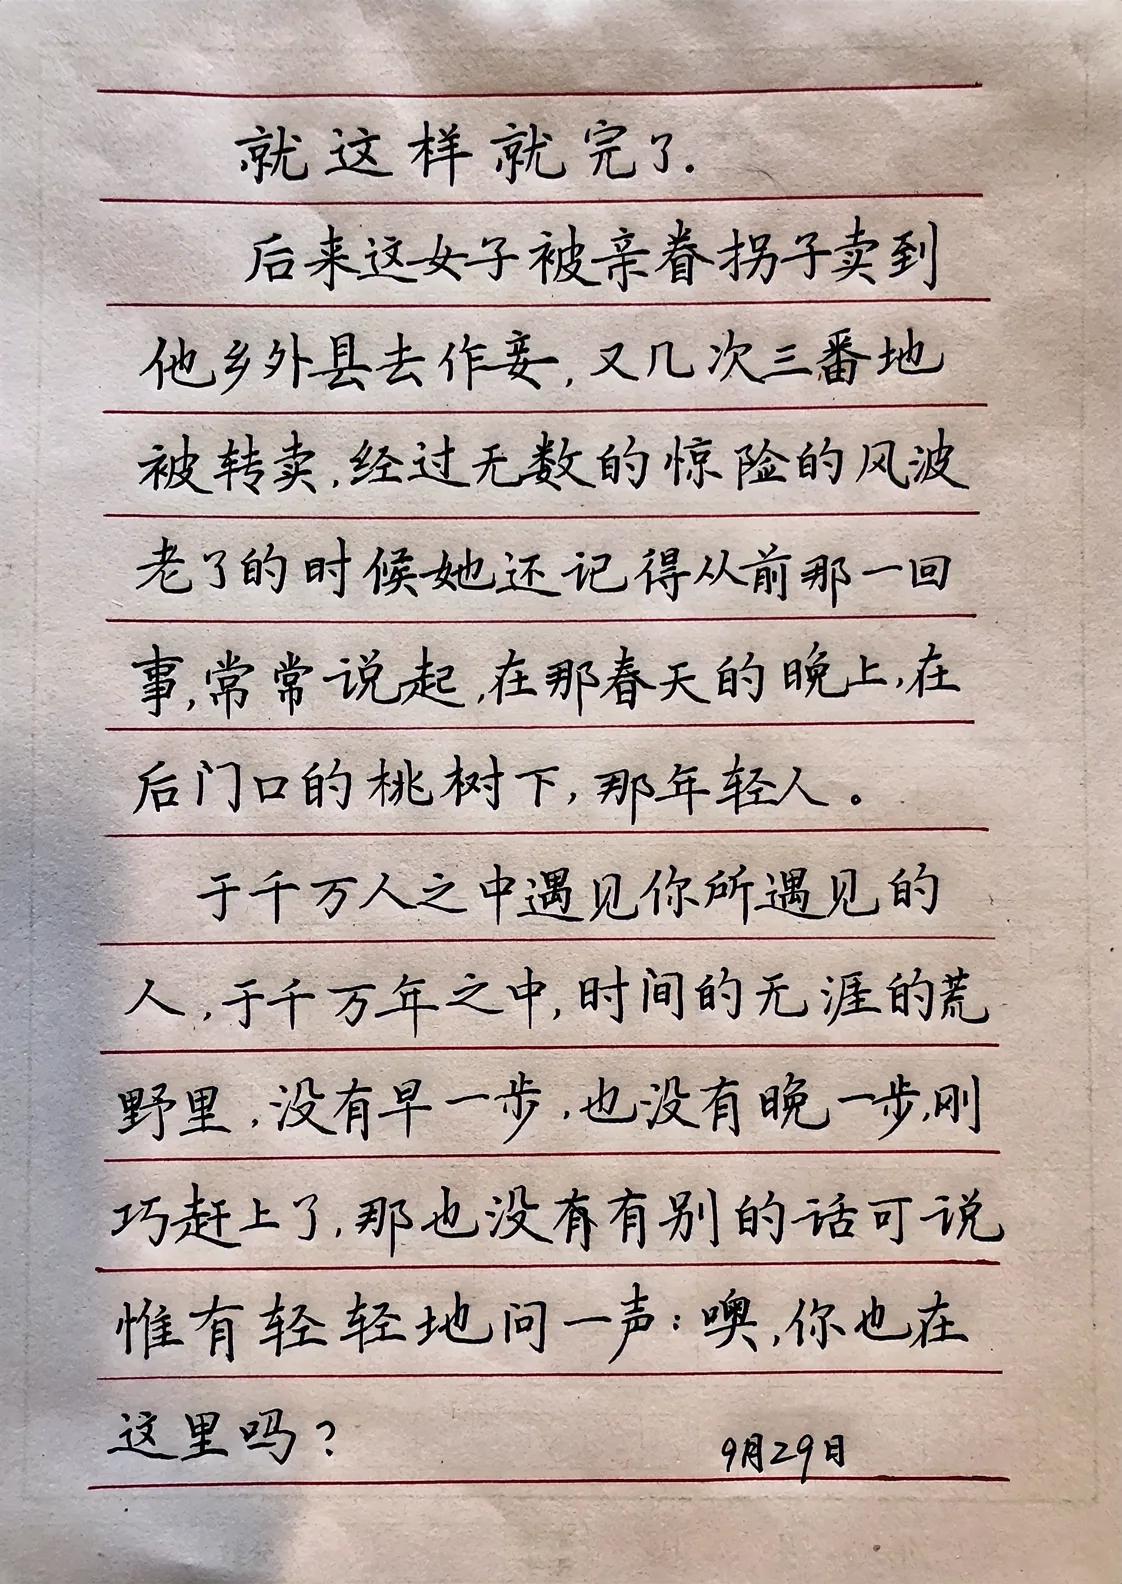 就这样就完了.
后来这女子被亲眷拐子卖到
他乡外县去作妾,又几次三番地
被转卖,经过无数的惊险的风波
老了的时候她还记得从前那一回
事,常常说起,在那春天的晚上,在
后门口的桃树下,那年轻人。
于千万人之中遇见你所遇见的
人,于千万年之中,时间的无涯的荒
野里,没有早一步,也没有晚一步,刚
巧赶上了,那也没有有别的话可说
惟有轻轻地问一声:噢,你也在
这里吗?
9月29日